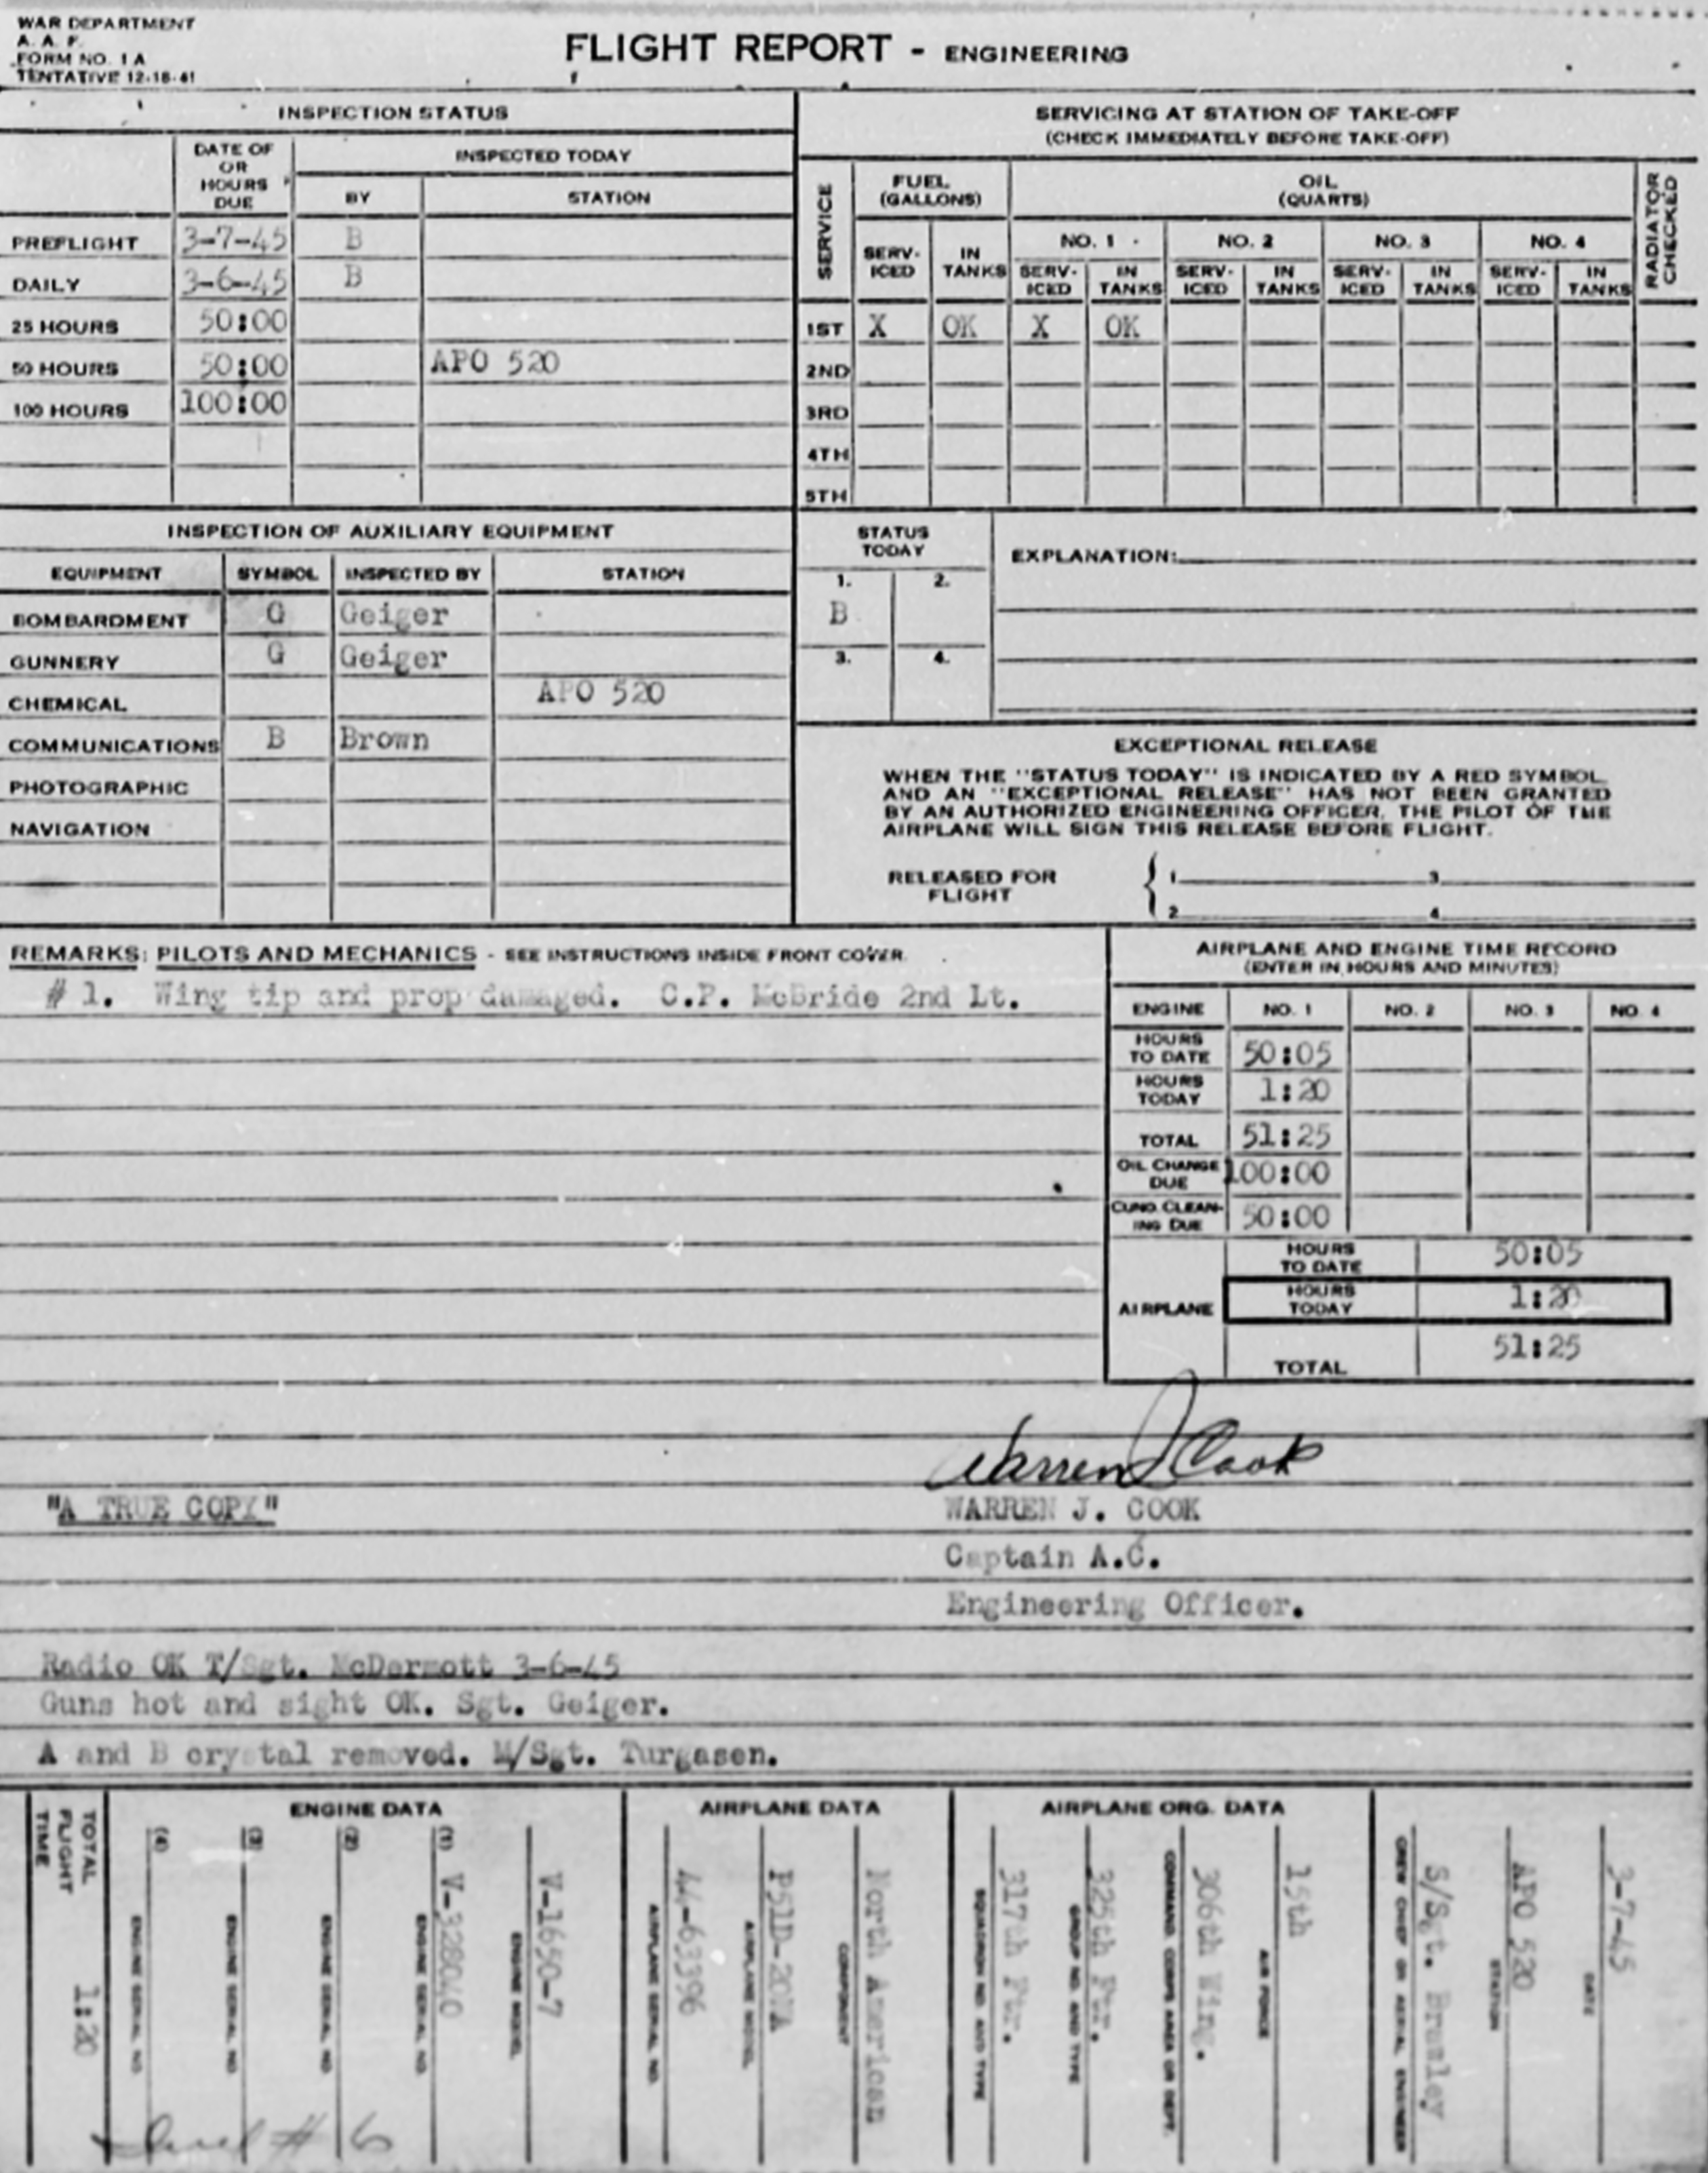 WAR DEPARTMENT
A. A. F.
FORM NO. 1 A
TENTATIVE 12-18-41
FLIGHT REPORT - ENGINEERING
INSPECTION STATUS
DATE OF OR HOURS DUE
INSPECTED TODAY
BY STATION
PREFLIGHT 3-7-45 B
DAILY 3-6-45 B
25 HOURS 50:00
50 HOURS 50:00 APO 520
100 HOURS 100:00
SERVICING AT STATION OF TAKE-OFF
(CHECK IMMEDIATELY BEFORE TAKE-OFF)
SERVICE
FUEL (GALLONS)
OIL (QUARTS)
RADIATOR CHECKED
NO. 1 NO. 2 NO. 3 NO. 4
SERV-ICED IN TANKS SERV-ICED IN TANKS SERV-ICED IN TANKS SERV-ICED IN TANKS SERV-ICED IN TANKS
1ST X OK X OK
2ND
3RD
4TH
5TH
INSPECTION OF AUXILIARY EQUIPMENT
EQUIPMENT SYMBOL INSPECTED BY STATION
BOMBARDMENT G Geiger
GUNNERY G Geiger
CHEMICAL APO 520
COMMUNICATIONS B Brown
PHOTOGRAPHIC
NAVIGATION
STATUS TODAY
1. 2.
B
3. 4.
EXPLANATION:
EXCEPTIONAL RELEASE
WHEN THE "STATUS TODAY" IS INDICATED BY A RED SYMBOL
AND AN "EXCEPTIONAL RELEASE" HAS NOT BEEN GRANTED
BY AN AUTHORIZED ENGINEERING OFFICER, THE PILOT OF THE
AIRPLANE WILL SIGN THIS RELEASE BEFORE FLIGHT.
RELEASED FOR FLIGHT
1 3
2 4
REMARKS: PILOTS AND MECHANICS - SEE INSTRUCTIONS INSIDE FRONT COVER.
# 1. Wing tip and prop damaged. C.P. McBride 2nd Lt.
AIRPLANE AND ENGINE TIME RECORD
(ENTER IN HOURS AND MINUTES)
ENGINE NO. 1 NO. 2 NO. 3 NO. 4
HOURS TO DATE 50:05
HOURS TODAY 1:20
TOTAL 51:25
OIL CHANGE DUE 100:00
CUNO. CLEAN-ING DUE 50:00
AIRPLANE
HOURS TO DATE 50:05
HOURS TODAY 1:20
TOTAL 51:25
Warren J Cook
"A TRUE COPY"
WARREN J. COOK
Captain A.C.
Engineering Officer.
Radio OK T/Sgt. McDermott 3-6-45
Guns hot and sight OK. Sgt. Geiger.
A and B crystal removed. M/Sgt. Turgasen.
TOTAL FLIGHT TIME 1:20
ENGINE DATA
(4) ENGINE SERIAL NO.
(3) ENGINE SERIAL NO.
(2) ENGINE SERIAL NO.
(1) V-328040 ENGINE SERIAL NO.
V-1650-7 ENGINE MODEL
AIRPLANE DATA
44-63396 AIRPLANE SERIAL NO.
P51D-20NA AIRPLANE MODEL
North American COMPONENT
AIRPLANE ORG. DATA
317th Ftr. SQUADRON NO. AND TYPE
325th Ftr. GROUP NO. AND TYPE
306th Wing. COMMAND, CORPS AREA OR DEPT.
15th AIR FORCE
S/Sgt. Bramley CREW CHIEF OR AERIAL ENGINEER
APO 520 STATION
3-7-45 DATE
# 6